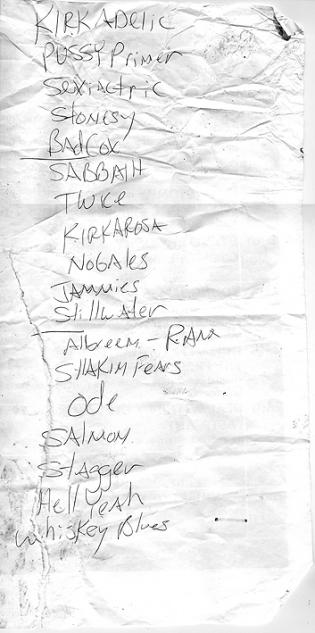 KIRKADELIC
PUSSY Primer
Sexiactric
Stonesy
BadCox
SABBATH
Twice
KIRKAROSA
NOGALES
JAMMIES
Stillwater
- RIANA
Fears
Ode
SALMON
Stagger
Hell Yeah
Whiskey Blues